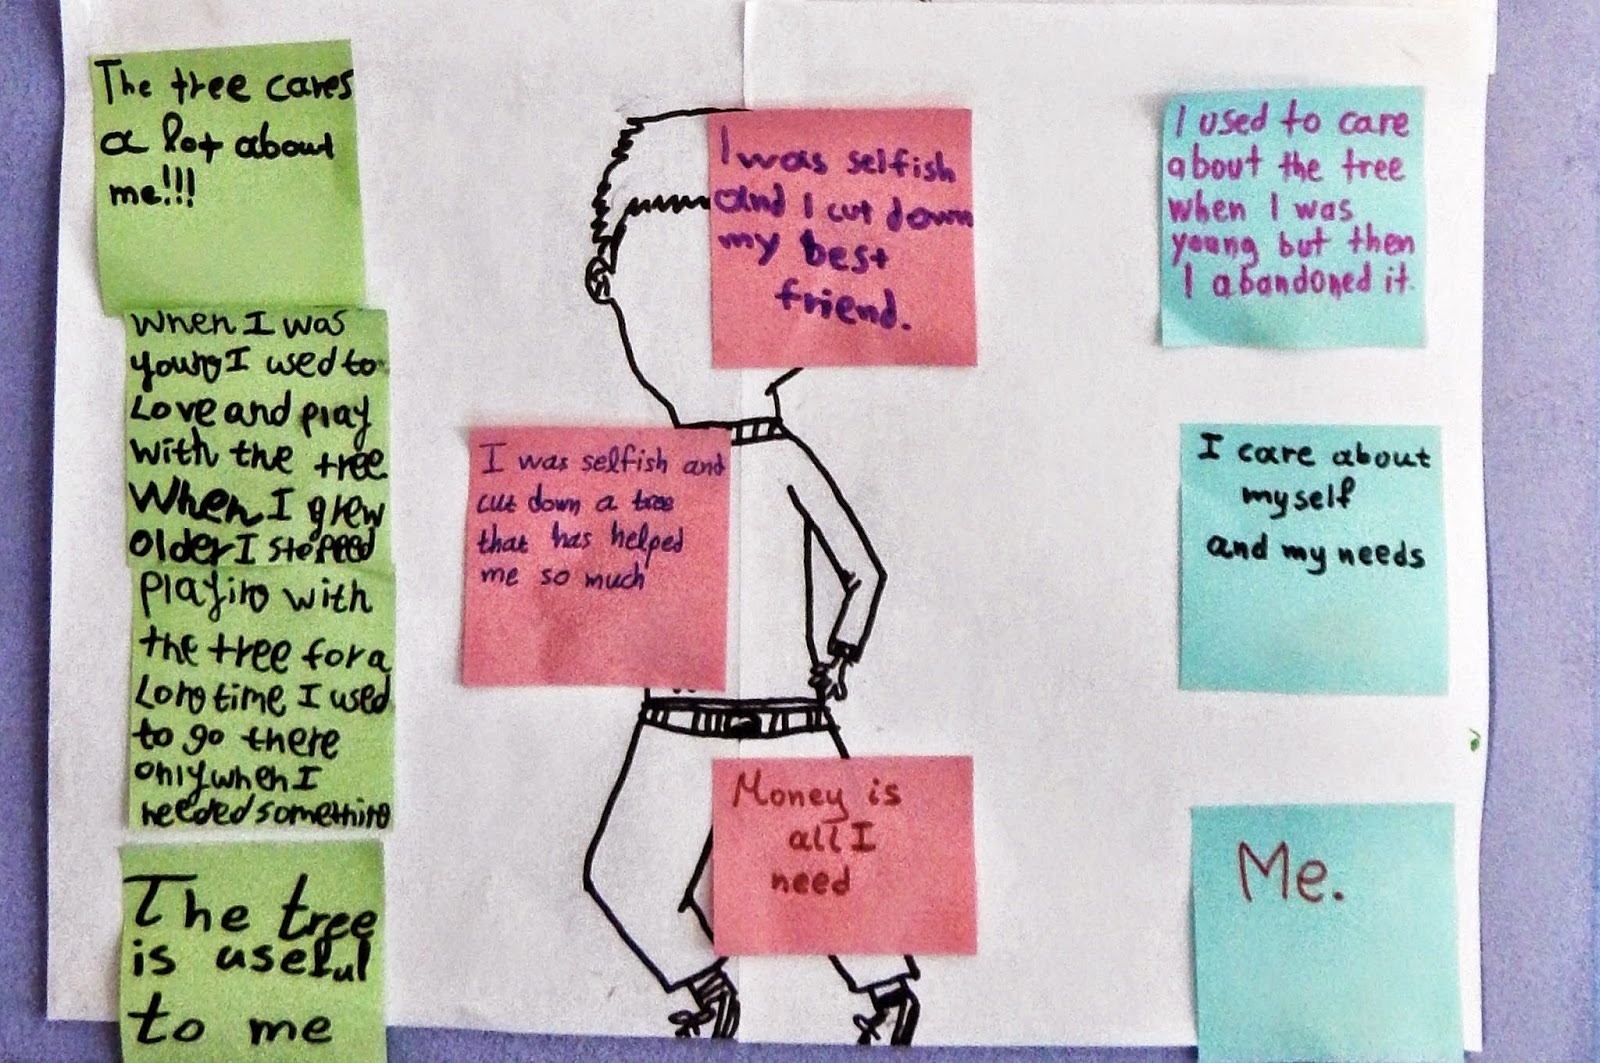 The tree cares
a lot about
me!!!
When I was
young I used to
Love and play
with the tree
When I grew
older I stopped
playing with
the tree for a
Long time I used
to go there
only when I
needed something
The tree
is useful
to me
I was selfish
and I cut down
my best
friend.
I was selfish and
cut down a tree
that has helped
me so much
Money is
all I
need
I used to care
about the tree
when I was
young but then
I abandoned it.
I care about
myself
and my needs
Me.